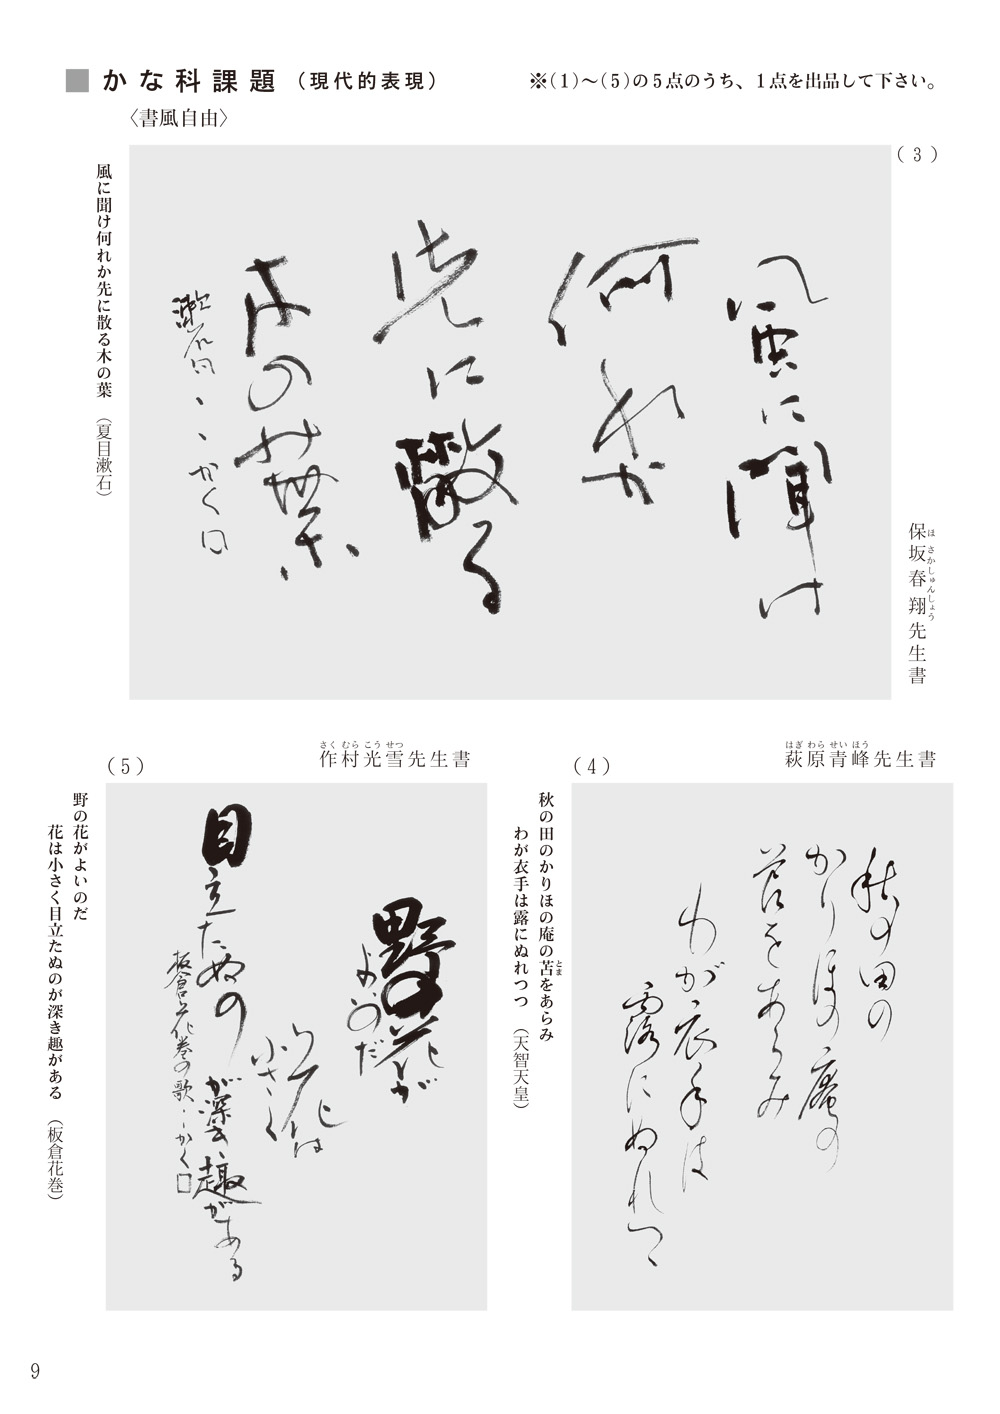 ■かな科課題（現代的表現）
※(1)〜(5)の5点のうち、1点を出品して下さい。
〈書風自由〉
(3)
保坂春翔先生書
ほさかしゅんしょう
風に聞け
何れか
先に散る
木の葉
漱石句、かく
風に聞け何れか先に散る木の葉　（夏目漱石）
(4)
萩原青峰先生書
はぎわらせいほう
秋の田の
かりほの庵の
苫をあらみ
わが衣手は
露にぬれつゝ
秋の田のかりほの庵の苫をあらみ
とま
わが衣手は露にぬれつつ　（天智天皇）
(5)
作村光雪先生書
さくむらこうせつ
野の花が
よいのだ
花は
小さく
目立たぬのが深き趣がある
板倉花巻の歌、かく
野の花がよいのだ
花は小さく目立たぬのが深き趣がある　（板倉花巻）
9